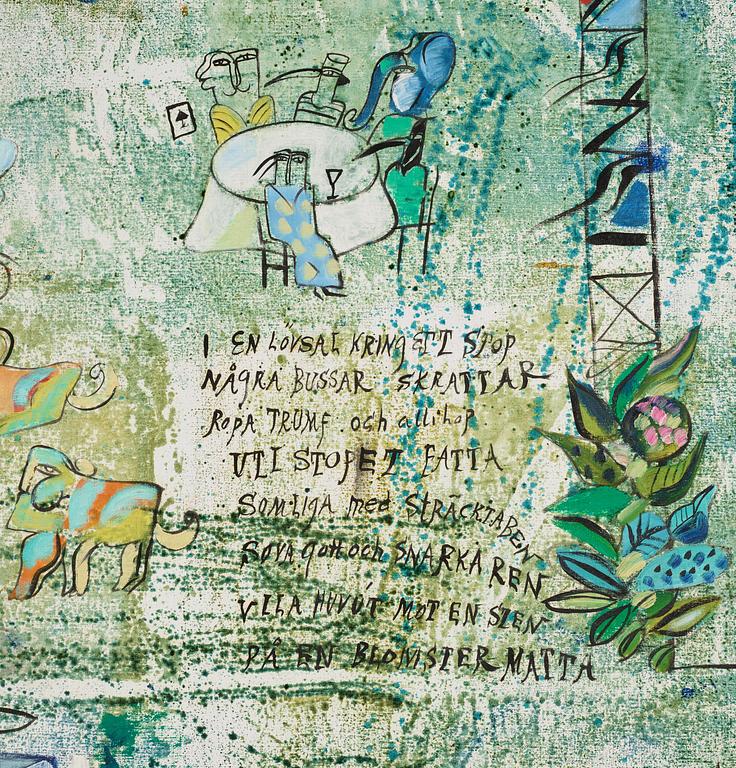 I EN LÖVSAL KRING ETT STOP
NÅGRA BUSSAR SKRATTAR
ROPA TRUMF och allihop
UTI STOPET FATTA
SOMLIGA med STRÄCKTA BEN
SOVA gott och SNARKA REN
VILA HUVUT MOT EN STEN
PÅ EN BLOMSTERMATTA